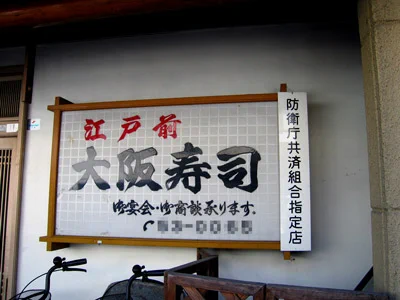 江戸前
大阪寿司
御宴会・御商談承ります.
防衛庁共済組合指定店